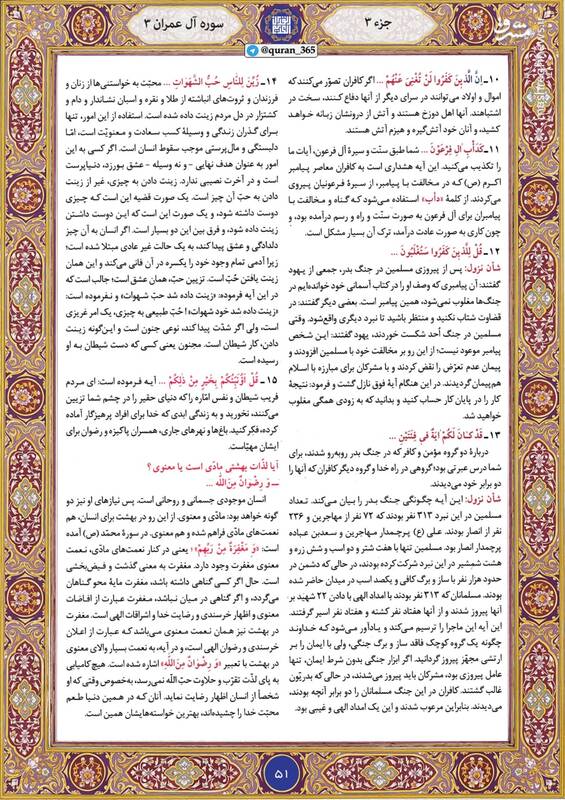 جزء ۳
سوره آل عمران ۳
@quran_365
۱۰ـ اِنَّ الَّذینَ کَفَرُوا لَنْ تُغْنِیَ عَنْهُمْ ... اگر کافران تصوّر می‌کنند که
اموال و اولاد می‌توانند در سرای دیگر از آنها دفاع کنند، سخت در
اشتباهند. آنها اهل دوزخ هستند و آتش از درونشان زبانه خواهد
کشید، و آنان خود آتش‌گیره و هیزم آتش هستند.
۱۱ـ کَدَأْبِ آلِ فِرْعَوْنَ ... شما طبق سنّت و سیرهٔ آل فرعون، آیات ما
را تکذیب می‌کنید. این آیه هشداری است به کافران معاصر پیامبر
اکرم (ص) که در مخالفت با پیامبر، از سیرهٔ فرعونیان پیروی
می‌کردند. از کلمهٔ «دأب» استفاده می‌شود که گناه و مخالفت با
پیامبران برای آل فرعون به صورت سنّت و راه و رسم درآمده بود، و
چون کاری به صورت عادت درآمد، ترک آن بسیار مشکل است.
۱۲ـ قُل لِلَّذینَ کَفَرُوا سَتُغْلَبُونَ ...
شأن نزول: پس از پیروزی مسلمین در جنگ بدر، جمعی از یهود
گفتند: آن پیامبری که وصف او را در کتاب آسمانی خود خوانده‌ایم در
جنگ‌ها مغلوب نمی‌شود، همین پیامبر است. بعضی دیگر گفتند: در
قضاوت شتاب نکنید و منتظر باشید تا نبرد دیگری واقع‌شود. وقتی
مسلمین در جنگ اُحد شکست خوردند، یهود گفتند: این شخص
پیامبر موعود نیست؛ از این رو بر مخالفت خود با مسلمین افزودند و
پیمان عدم تعرّض را نقض کردند و با مشرکان برای مبارزه با اسلام
هم‌پیمان گردیدند. در این هنگام آیهٔ فوق نازل گشت و فرمود: نتیجهٔ
کار را در پایان کار حساب کنید و بدانید که به زودی همگی مغلوب
خواهید شد.
۱۳ـ قَدْ کَانَ لَکُمْ آیَةٌ فِی فِئَتَیْنِ ...
دربارهٔ دو گروه مؤمن و کافر که در جنگ بدر روبه‌رو شدند، برای
شما درس عبرتی بود؛ گروهی در راه خدا و گروه دیگر کافران که آنها را
دو برابر خود می‌دیدند.
شأن نزول: این آیه چگونگی جنگ بدر را بیان می‌کند. تعداد
مسلمین در این نبرد ۳۱۳ نفر بودند که ۷۷ نفر از مهاجرین و ۲۳۶
نفر از انصار بودند. علی (ع) پرچمدار مهاجرین و سعدبن عباده
پرچمدار انصار بود. مسلمین تنها با هفت شتر و دو اسب و شش زره و
هشت شمشیر در این نبرد شرکت کرده بودند، در حالی که دشمن در
حدود هزار نفر با ساز و برگ کافی و یکصد اسب در میدان حاضر شده
بودند. مسلمانان که ۳۱۳ نفر بودند با امداد الهی با دادن ۲۲ شهید بر
آنها پیروز شدند و از آنها هفتاد نفر کشته و هفتاد نفر اسیر گرفتند.
این آیه این ماجرا را ترسیم می‌کند و یادآور می‌شود که خداوند
چگونه یک گروه کوچک فاقد ساز و برگ جنگی، ولی با ایمان را بر
ارتشی مجهّز پیروز گردانید. اگر ابزار جنگی بدون شرط ایمان، تنها
عامل پیروزی بود، مشرکان باید پیروز می‌شدند، در حالی که بدریّون
غالب گشتند. کافران در این جنگ مسلمانان را دو برابر آنچه بودند،
می‌دیدند. بنابراین مرعوب شدند و این یک امداد الهی و غیبی بود.
۱۴ـ زُیِّنَ لِلنَّاسِ حُبُّ الشَّهَوَاتِ ... محبّت به خواستنی‌ها از زنان و
فرزندان و ثروت‌های انباشته از طلا و نقره و اسبان نشاندار و دام و
کشتزار در دل مردم زینت داده شده است. استفاده از این امور، تنها
برای گذران زندگی و وسیلهٔ کسب سعادت و معنویّت است، امّا
دلبستگی و مال‌پرستی موجب سقوط انسان است. اگر کسی به این
امور به عنوان هدف نهایی - و نه وسیله - عشق بورزد، دنیاپرست
است و در آخرت نصیبی ندارد. زینت دادن به چیزی، غیر از زینت
دادن به حبّ آن چیز است. یک صورت قضیه این است که چیزی
دوست داشته شود، و یک صورت این است که این دوست داشتن
زینت داده شود، و فرق بین این دو بسیار است. اگر انسان به آن چیز
دلدادگی و عشق پیدا کند، به یک حالت غیر عادی مبتلا شده است؛
زیرا آدمی تمام وجود خود را یکسره در آن فانی می‌کند و این همان
زینت یافتن حُبّ است. تزیین حبّ، همان عشق است؛ جالب است که
در این آیه فرموده: «زینت داده شد حبّ شهوات» و نفرموده است:
«زینت داده شد خود شهوات»! حُبّ طبیعی به چیزی، یک امر غریزی
است، ولی اگر شدّت پیدا کند، نوعی جنون است و این‌گونه زینت
دادن، کار شیطان است. مجنون یعنی کسی که دست شیطان به او
رسیده است.
۱۵ـ قُلْ اَؤُنَبِّئُکُمْ بِخَیْرٍ مِنْ ذلِکُمْ ... آیه فرموده است: ای مردم
فریب شیطان و نفس امّاره را که دنیای حقیر را در چشم شما تزیین
می‌کنند، نخورید و به زندگی ابدی که خدا برای افراد پرهیزگار آماده
کرده، فکر کنید. باغ‌ها و نهرهای جاری، همسران پاکیزه و رضوان برای
ایشان مهیّاست.
آیا لذّات بهشتی مادّی است یا معنوی؟
ـ وَ رِضْوانٌ مِنَ اللهِ ...
انسان موجودی جسمانی و روحانی است. پس نیازهای او نیز دو
گونه خواهد بود: مادّی و معنوی. از این رو در بهشت برای انسان، هم
نعمت‌های مادّی فراهم شده و هم معنوی. در سورهٔ محمّد (ص) آمده
است: «وَ مَغْفِرَةٌ مِنْ رَبِّهِمْ»؛ یعنی در کنار نعمت‌های مادّی، نعمت
معنوی مغفرت وجود دارد. مغفرت به معنی گذشت و فیض‌بخشی
است. حال اگر کسی گناهی داشته باشد، مغفرت مایهٔ محو گناهان
می‌گردد، و اگر گناهی در میان نباشد، مغفرت عبارت از افاضات
معنوی و اظهار خرسندی و رضایت خدا و اشراقات الهی است. مغفرت
در بهشت نیز همان نعمت معنوی می‌باشد که عبارت از اعلان
خرسندی و رضوان الهی است، و در آیه، به نعمت بسیار والای معنوی
در بهشت با تعبیر «وَ رِضْوانٌ مِنَ اللهِ» اشاره شده است. هیچ کامیابی
به پای لذّت تقرّب و حلاوت حبّ الله نمی‌رسد، به‌خصوص وقتی که او
شخصاً از انسان اظهار رضایت نماید. آنان که در همین دنیا طعم
محبّت خدا را چشیده‌اند، بهترین خواسته‌هایشان همین است.
۵۱